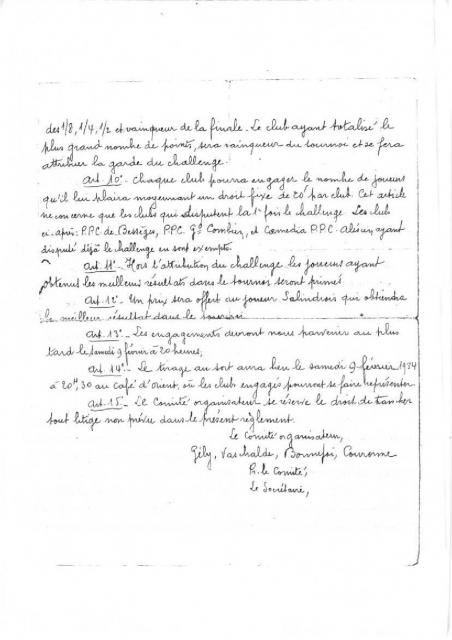 des 1/8, 1/4, 1/2 et vainqueur de la finale. Le club ayant totalisé le
plus grand nombre de points, sera vainqueur du tournoi et se fera
attribuer la garde du challenge.
Art. 10° - Chaque club pourra engager le nombre de joueurs
qu'il lui plaira moyennant un droit fixe de 20f par club. Cet article
ne concerne que les clubs qui disputent la 1e fois le challenge. Les club
ci-après: P.P.C de Bessèges, P.P.C. Gd Combien, et Comedia P.P.C. Alésien, ayant
disputé déjà le challenge en sont exempts.
Art. 11° - Hors l'attribution du challenge les joueurs ayant
obtenus les meilleurs résultats dans le tournoi seront primés.
Art. 12° - Un prix sera offert au joueur Salindrois qui obtiendra
le meilleur résultat dans le tournoi.
Art. 13° - Les engagements devront nous parvenir au plus
tard le samedi 9 février à 20 heures.
Art. 14° - Le tirage au sort aura lieu le samedi 9 février 1934
à 20H,30 au café d'Orient, où les club engagés pourront se faire représenter.
Art. 15 - Le Comité organisateur se réserve le droit de trancher
tout litige non prévu dans le présent règlement.
Le Comité organisateur,
Gély, Vaschalde, Bonnefoi, Couronne
P. le Comité,
Le Secrétaire,